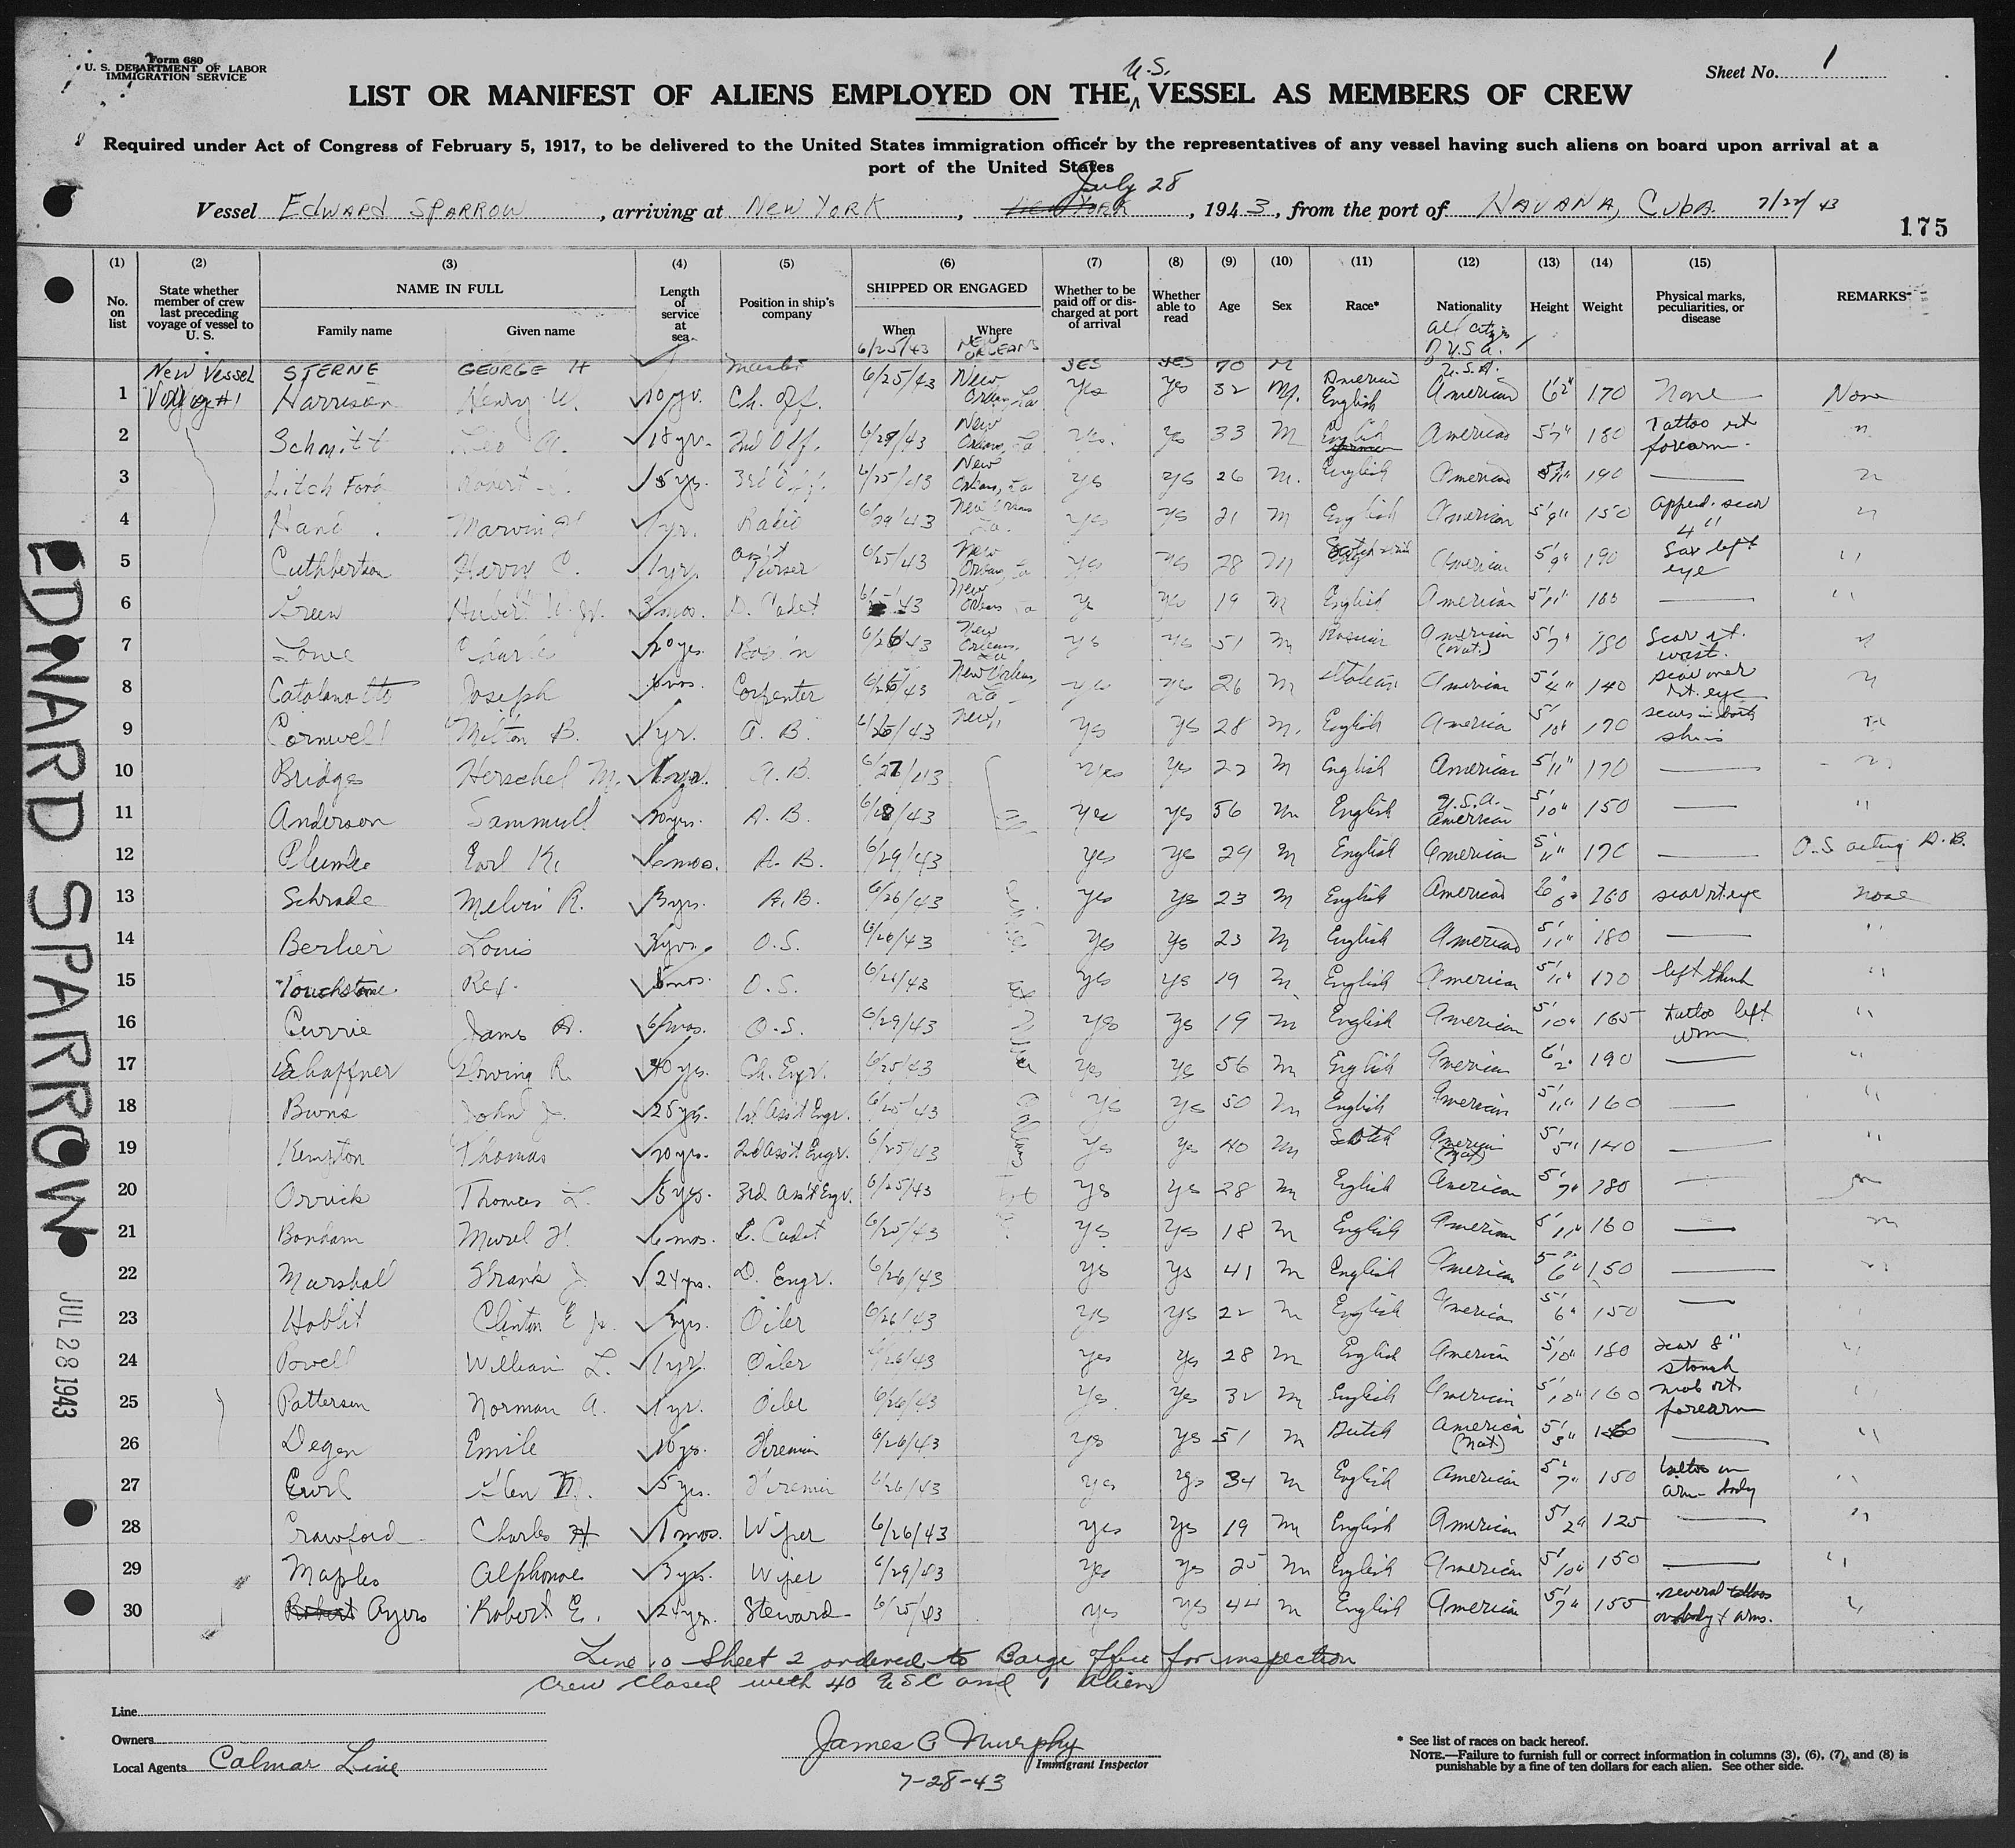 Form 680
U. S. DEPARTMENT OF LABOR
IMMIGRATION SERVICE
Sheet No. 1
U.S.
LIST OR MANIFEST OF ALIENS EMPLOYED ON THE VESSEL AS MEMBERS OF CREW
Required under Act of Congress of February 5, 1917, to be delivered to the United States immigration officer by the representatives of any vessel having such aliens on board upon arrival at a
port of the United States
July 28
Vessel EDWARD SPARROW, arriving at NEW YORK, New York, 1943, from the port of HAVANA, CUBA 7/22/43
175
(1) (2) (3) (4) (5) (6) (7) (8) (9) (10) (11) (12) (13) (14) (15)
No. on list
State whether member of crew last preceding voyage of vessel to U. S.
NAME IN FULL
Family name
Given name
Length of service at sea
Position in ship's company
SHIPPED OR ENGAGED
When
Where
Whether to be paid off or discharged at port of arrival
Whether able to read
Age
Sex
Race*
Nationality
Height
Weight
Physical marks, peculiarities, or disease
REMARKS
6/25/43 NEW ORLEANS
All citizs
of U.S.A.
New Vessel STERNE GEORGE H Master YES YES 70 M U.S.A.
1 Voyage #1 Harrison Henry W. 10 yr. Ch. Off. 6/25/43 New Orleans, La Yes Yes 32 M. American English American 6'2" 170 None None
2 Schmitt Leo A. 18 yr. 2nd Off. 6/29/43 New Orleans, La Yes. Yes 33 M English German American 5'7" 180 Tattoo rt forearm "
3 Litch Ford Robert 5 ys. 3rd Off. 6/25/43 New Orleans, La Yes Yes 26 M. English American 190 — "
4 Hand Marvin 1 yr. Radio 6/29/43 New Orleans La. Yes Yes 21 M English American 5'9" 150 Apped. scar 4" "
5 Cuthbertson Harry C. 1 yr. Ass't Purser 6/25/43 New Orleans, La Yes Yes 28 M American 5'9" 190 Scar left eye "
6 Green Hubert W. Jr. 3 mos. D. Cadet 43 New Orleans La Ye Yes 19 M English American 5'11" — "
7 Lowe Charles 20 yrs. Bos'n 6/26/43 New Orleans, La Yes Yes 51 M Russian American (Nat.) 5'7" 180 Scar rt. wrist. "
8 Catalanotto Joseph mos. Carpenter 6/26/43 New Orleans, La Yes Yes 26 M Italian American 5'4" 140 scar over rt. eye "
9 Cornwell Milton B. 1 yr. A. B. 43 New, Yes Yes 28 M. English American 5'10" 170 scars in both shins "
10 Bridges Herschel M. A.B. 6/27/43 Yes Yes 22 M English American 5'11" 170 — "
11 Anderson Sammull 20 yrs. A. B. 6/28/43 Yes Yes 56 M English U.S.A. American 5'10" 150 — "
12 Plumlee Earl K. 6 mos. A. B. 6/29/43 Yes Yes 29 M English American 5'11" 170 — O.S acting A.B.
13 Schrade Melvin R. 3 yrs. A. B. 6/26/43 Yes Yes 23 M English American 6'0" 260 scar rt. eye none
14 Berlier Louis O. S. 6/26/43 Yes Yes 23 M English American 5'11" 180 — "
15 Touchstone Rex 8 mos. O. S. 43 Yes Yes 19 M English American 5'11" 170 left thumb "
16 Currie James A. 6 mos. O.S. 6/29/43 Yes Yes 19 M English American 5'10" 165 tattoo left arm "
17 Schaffner Irving R. 40 ys. Ch. Engr. 6/25/43 Yes Yes 56 M English American 6'2" 190 — "
18 Burns John J. 25 yr. 1st Ass't Engr. 6/25/43 Yes Yes 50 M English American 5'11" 160 — "
19 Kempton Thomas 20 yrs. 2d Ass't Engr. 6/25/43 Yes Yes 40 M Scotch American (Nat) 5'5" 140 — "
20 Orrick Thomas L. 5 yrs. 3rd Ass't Engr. 6/25/43 Yes Yes 28 M English American 5'7" 180 — "
21 Bondam Murel H. 6 mos. E. Cadet 6/25/43 Yes Yes 18 M English American 5'11" 160 — "
22 Marshal Frank J. 24 yrs. D. Engr. 6/26/43 Yes Yes 41 M English American 5'6" 150 — "
23 Hoblit Clinton E Jr. 3 yrs. Oiler 6/26/43 Yes Yes 22 M English American 5'6" 150 — "
24 Powell William L. 1 yr. Oiler 6/26/43 Yes Yes 28 M English American 5'10" 180 scar 8" stomah "
25 Patterson Norman A. 1 yr. Oiler 6/26/43 Yes Yes 32 M English American 5'10" 160 rt. forearm "
26 Degen Emile 10 yrs. Fireman 6/26/43 Yes Yes 51 M Dutch America (Nat) 5'3" — "
27 Earl Glen M. 5 yrs. Fireman 6/26/43 Yes Yes 34 M English American 5'7" 150 tattoo on arm body "
28 Crawford Charles H 1 mos. Wiper 6/26/43 Yes Yes 19 M English American 5'2" 125 — "
29 Maples Alphonse 3 yrs. Wiper 6/29/43 Yes Yes 25 M English American 5'10" 150 — "
30 Robert Ayers Robert E. 24 yr. Steward 6/25/43 Yes Yes 44 M English American 5'7" 155 several tattoos on body & arms. "
Line 10 Sheet 2 ordered to Barge Office for inspection
Crew closed with 40 USC and 1 Alien
Line
Owners
Local Agents Calmar Line
James C Murphy
Immigrant Inspector
7-28-43
* See list of races on back hereof.
NOTE.—Failure to furnish full or correct information in columns (3), (6), (7), and (8) is
punishable by a fine of ten dollars for each alien. See other side.
EDWARD SPARROW
JUL 28 1943